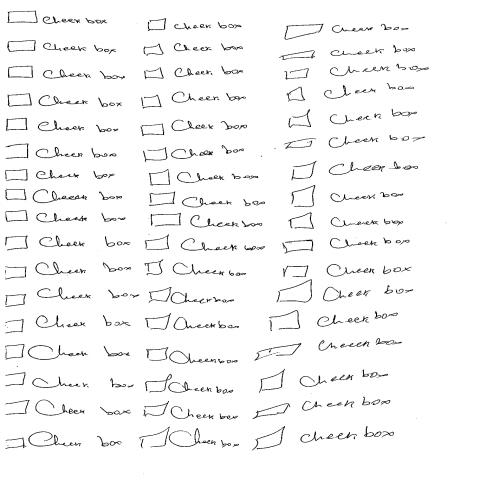 Check box Check box Check box
Check box Check box Check box
Check box Check box Check box
Check box Check box Check box
Check box Check box Check box
Check box Check box Check box
Check box Check box Check box
Check box Check box Check box
Check box Check box Check box
Check box Check box Check box
Check box Check box Check box
Check box Check box Check box
Check box Check box Check box
Check box Check box Check box
Check box Check box Check box
Check box Check box Check box
Check box Check box check box